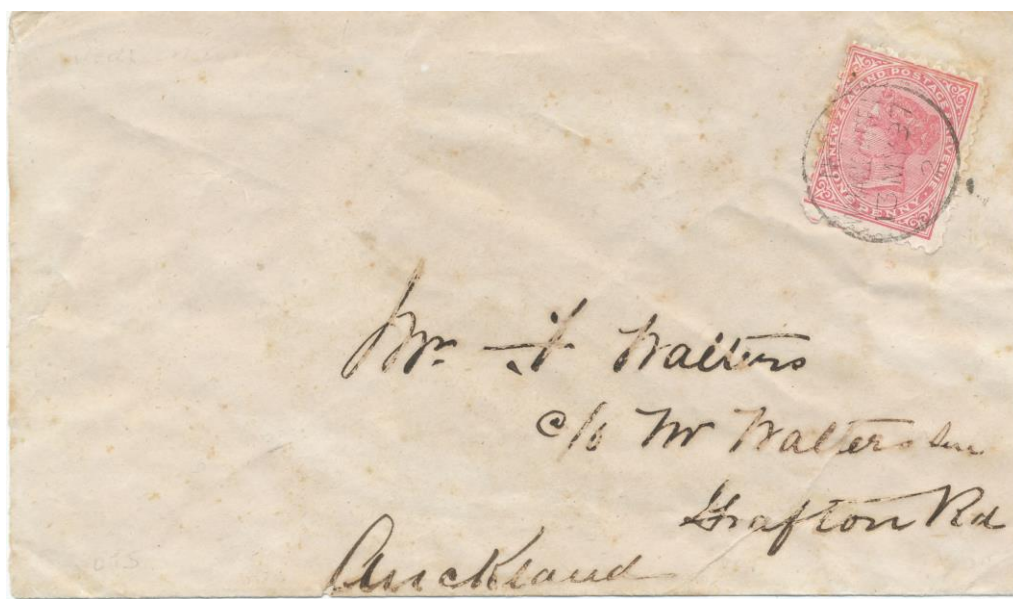 NEW ZEALAND POSTAGE & REVENUE
ONE PENNY
Mr F Walters
c/o Mr Walters Senr
Grafton Rd
Auckland